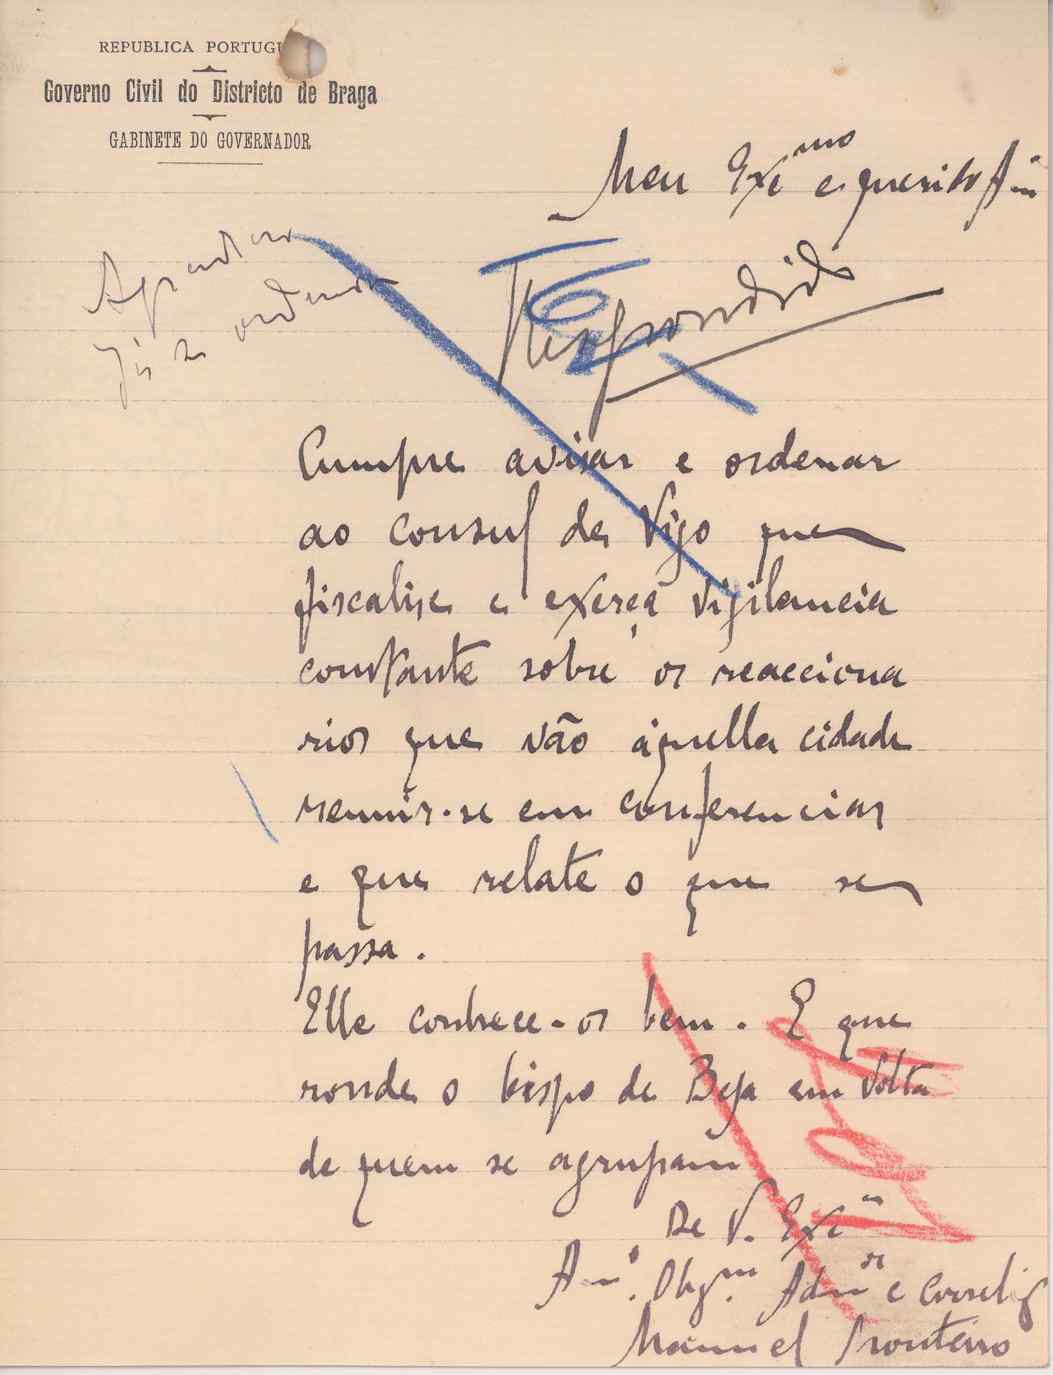 REPUBLICA PORTUGU
Governo Civil do Districto de Braga
GABINETE DO GOVERNADOR
Meu Exmo e querido Am
Respondido
Já se
Cumpre avisar e ordenar
ao consul de Vigo que
fiscalise e exerça vigilancia
constante sobre os reacciona
rios que vão áquella cidade
reunir-se em conferencias
e que relate o que se
passa.
Elle conhece-os bem. E que
ronde o bispo de Beja em volta
de quem se agrupam
De V. Exa
Amo. Obgmo. Admor e Correlig
Manuel Monteiro